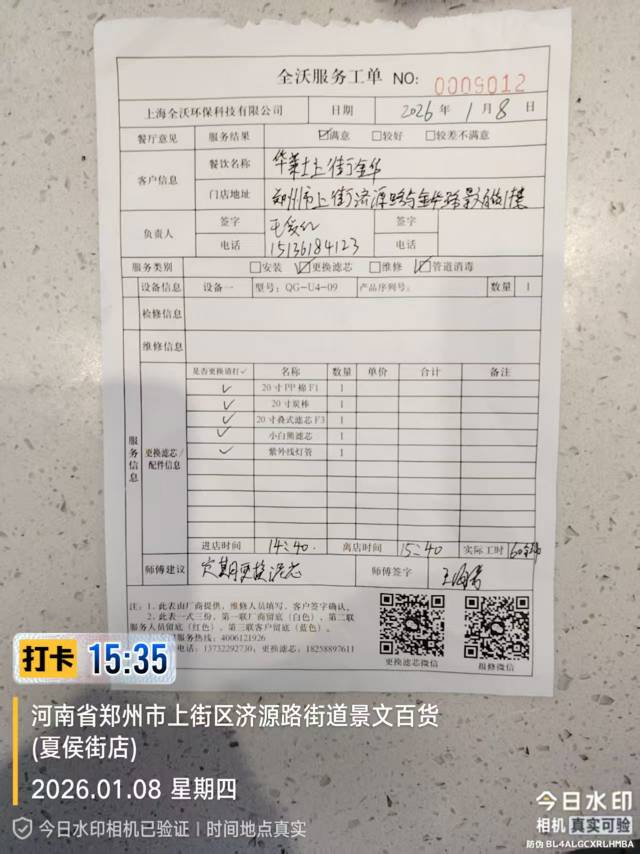 全沃服务工单 NO: 0009012
上海全沃环保科技有限公司 日期 2026年1月8日
餐厅意见 服务结果 ☑满意 □较好 □较差不满意
客户信息 餐饮名称 华莱士上街金华
门店地址 郑州市上街济源路与金华路
负责人 签字 签字
电话 15136184123 电话
服务类别 □安装 ☑更换滤芯 □维修 ☑管道消毒
设备信息 设备一 型号: QG-U4-09 产品序列号: 数量 1
检修信息
维修信息
服务信息
更换滤芯/配件信息
是否更换请打✓ 名称 数量 单价 合计 备注
✓ 20寸PP棉F1 1
✓ 20寸炭棒 1
✓ 20寸叠式滤芯F3 1
✓ 小白熊滤芯 1
✓ 紫外线灯管 1
进店时间 14:40. 离店时间 15:40 实际工时 60分钟
师傅建议 定期更换滤芯 师傅签字
注: 1. 此表由厂商提供, 维修人员填写, 客户签字确认。
2. 此表一式三份, 第一联厂商留底(白色), 第二联
服务人员留底(红色), 第三联客户留底(蓝色)。
服务热线: 4006121926
电话: 13732292730, 更换滤芯: 18258897611
更换滤芯微信 报修微信
打卡 15:35
河南省郑州市上街区济源路街道景文百货
(夏侯街店)
2026.01.08 星期四
今日水印相机已验证 | 时间地点真实
今日水印
相机 真实可验
防伪 BL4ALGCXRLHMBA